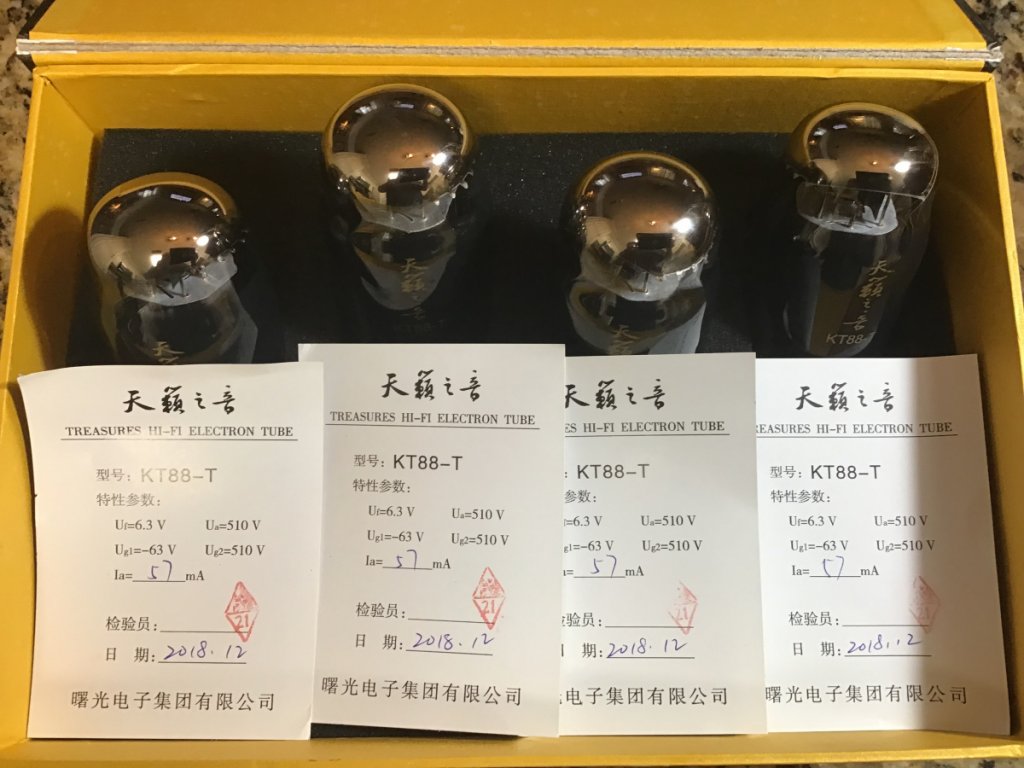 天
天籁之音
KT88-T
天
天籁之音
KT88-T
天籁之音
TREASURES HI-FI ELECTRON TUBE
型号: KT88-T
特性参数:
Uf=6.3 V Ua=510 V
Ug1=-63 V Ug2=510 V
Ia= 57 mA
21
检验员:
日 期: 2018.12
曙光电子集团有限公司
天籁之音
TREASURES HI-FI ELECTRON TUBE
型号: KT88-T
特性参数:
Uf=6.3 V Ua=510 V
Ug1=-63 V Ug2=510 V
Ia= 57 mA
21
检验员:
日 期: 2018.12
曙光电子集团有限公司
天籁之音
ES HI-FI ELECTRON TUBE
: KT88-T
参数:
=6.3 V Ua=510 V
g1=-63 V Ug2=510 V
= 57 mA
21
验员:
期: 2018.12
光电子集团有限公司
天籁之音
EASURES HI-FI ELECTRON TUBE
型号: KT88-T
特性参数:
Uf=6.3 V Ua=510 V
Ug1=-63 V Ug2=510 V
Ia= 57 mA
检验员:
日 期: 2018.12
曙光电子集团有限公司